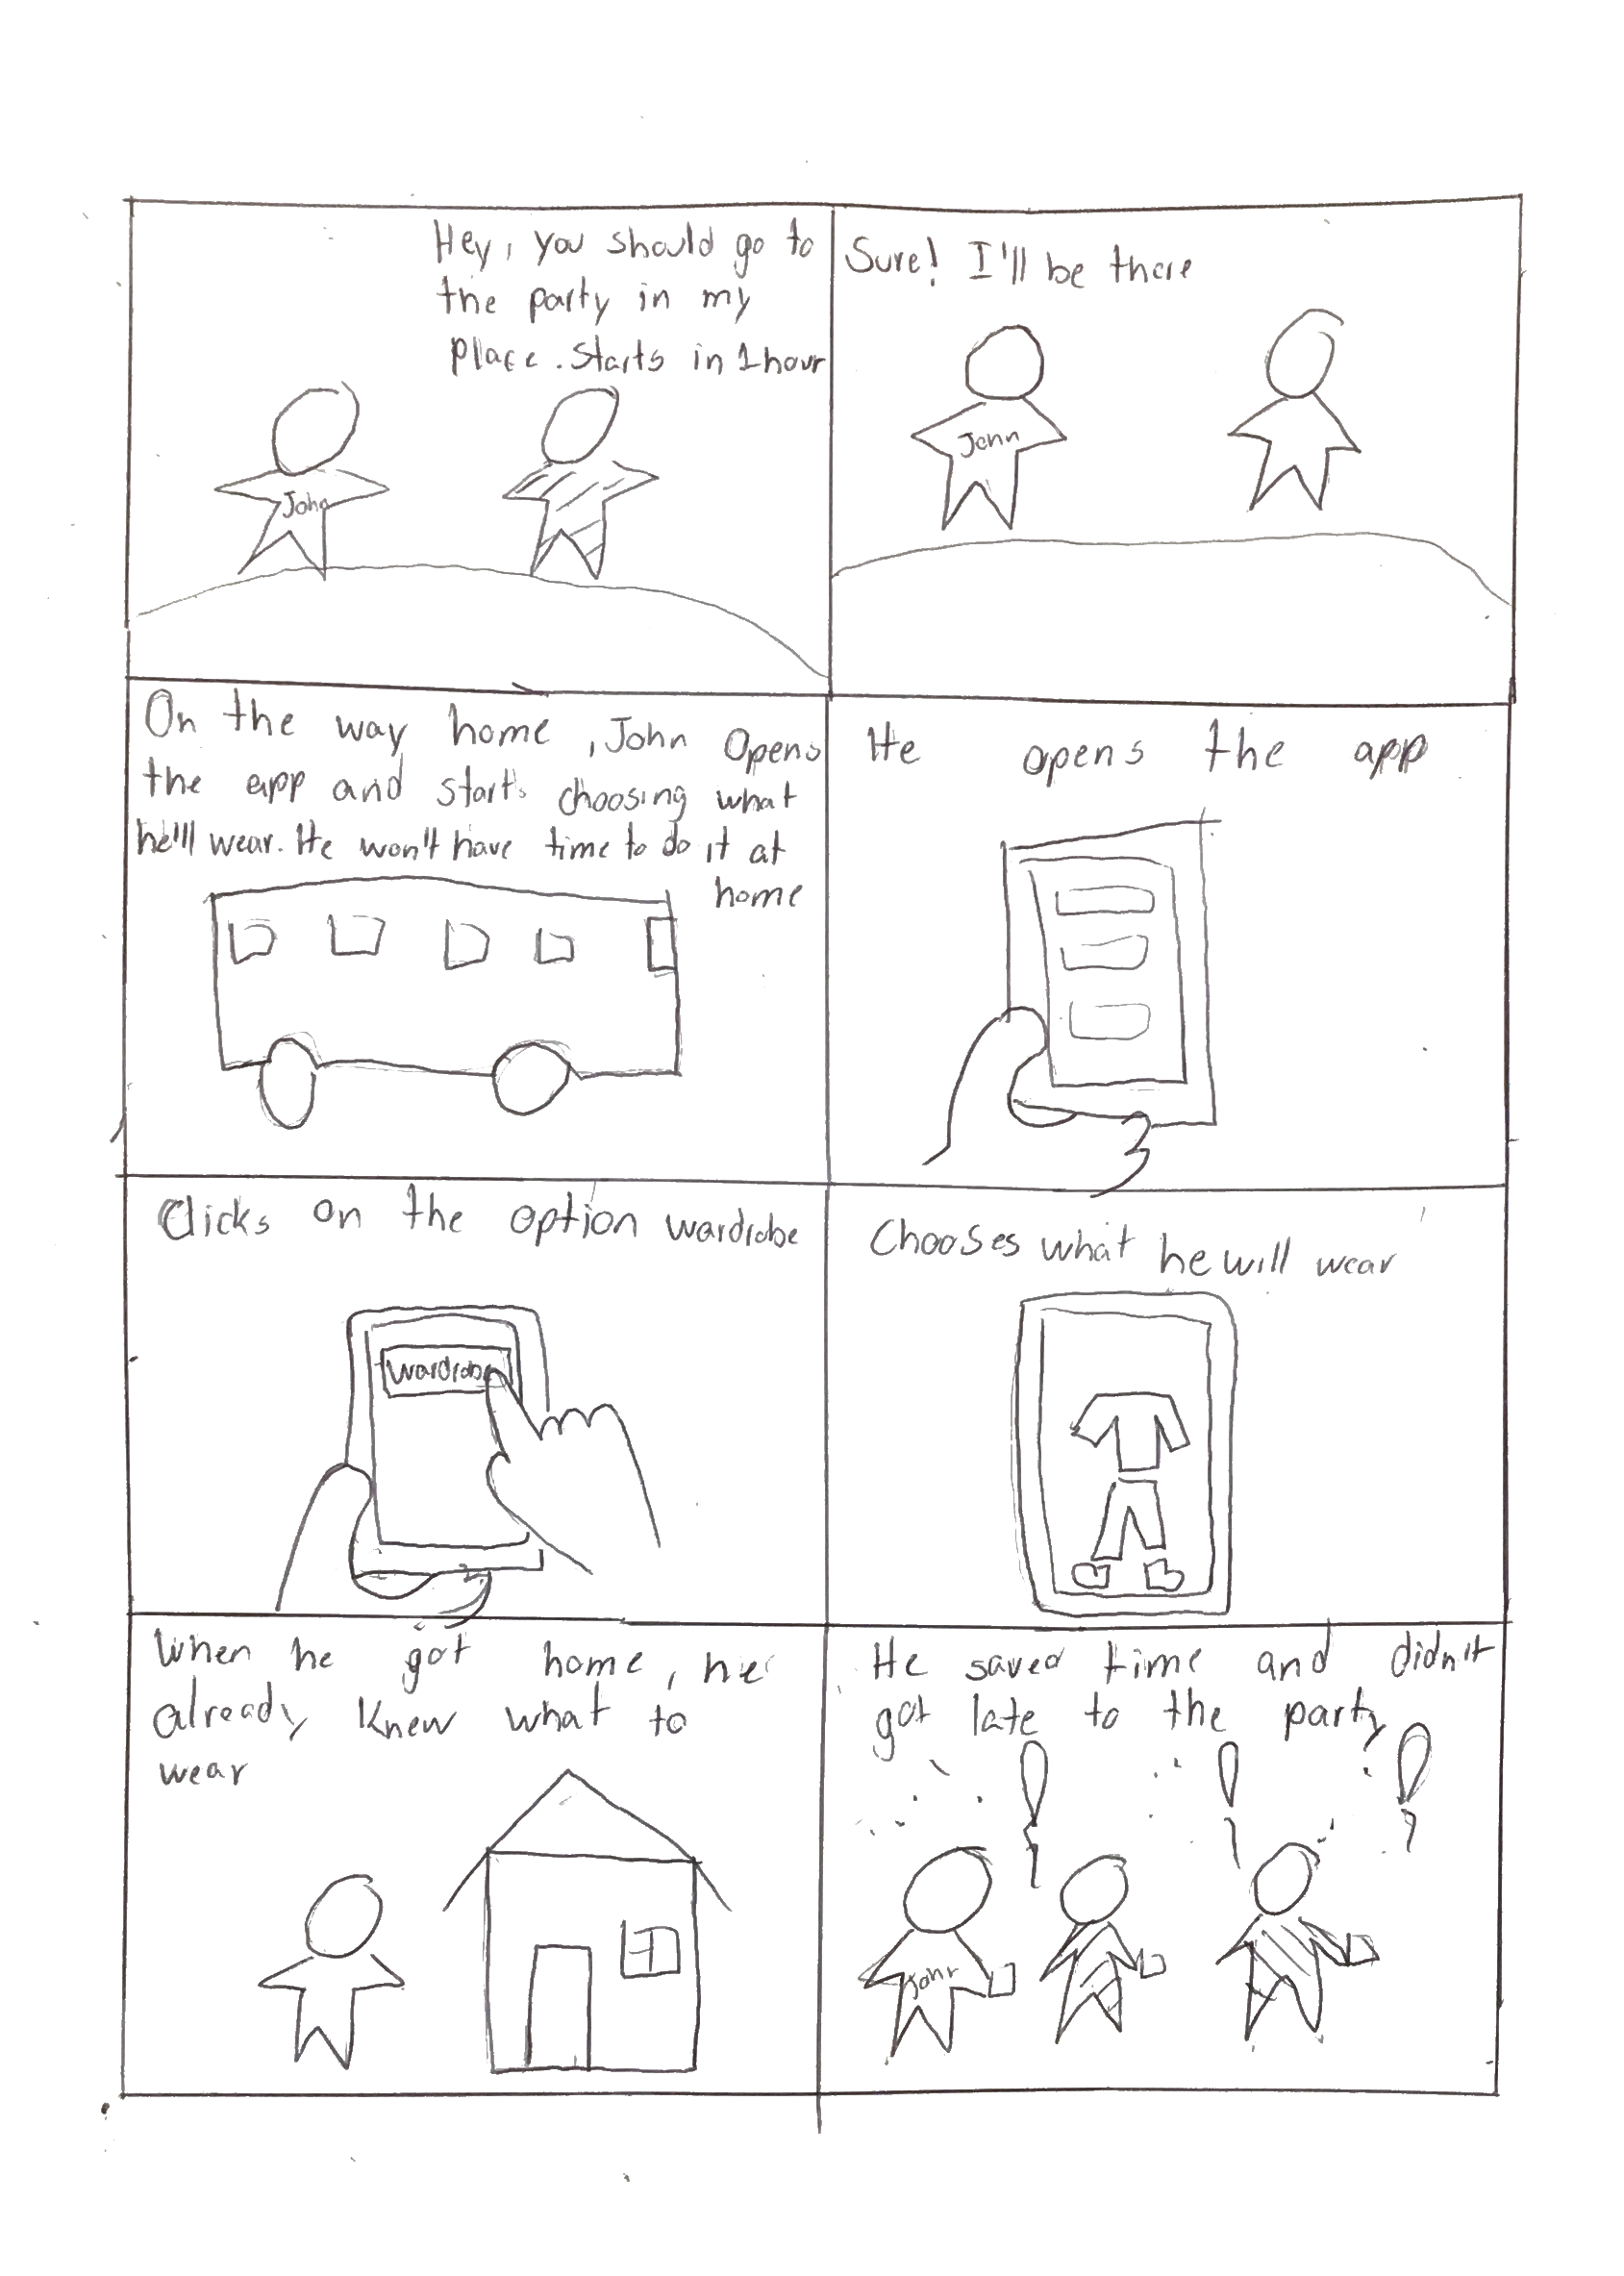 Hey, you should go to
the party in my
place. Starts in 1hour
John
Sure! I'll be there
John
On the way home, John Opens
the app and starts choosing what
he'll wear. He won't have time to do it at
home
He opens the app
Clicks on the option wardrobe
Wardrobe
Chooses what he will wear
When he got home, he
already knew what to
wear
He saved time and didn't
got late to the party
John